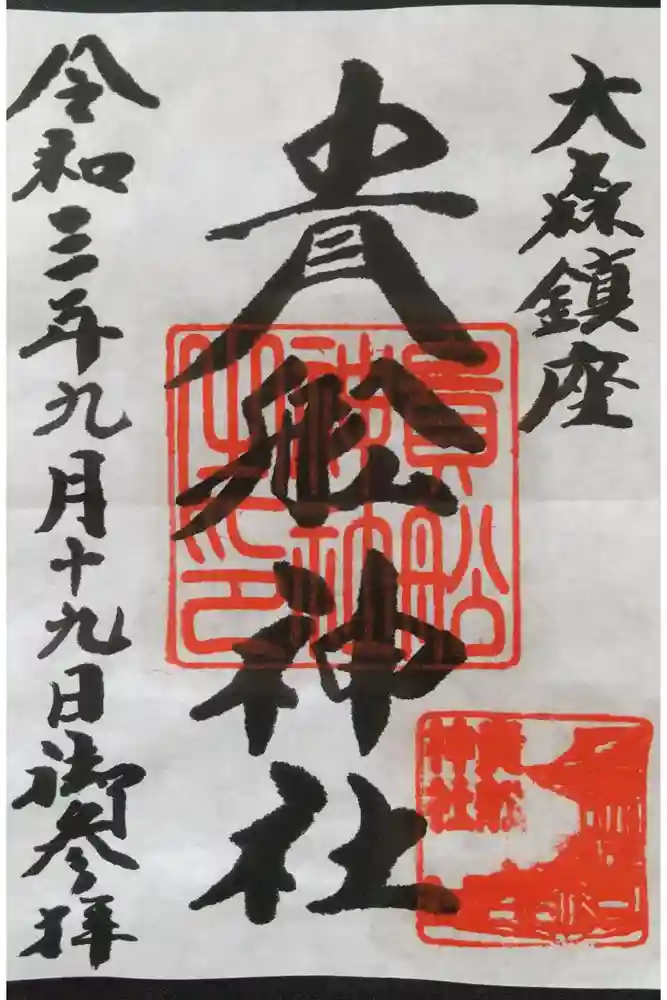 大森鎮座
貴船神社
令和三年九月十九日御参拝
貴船
神社